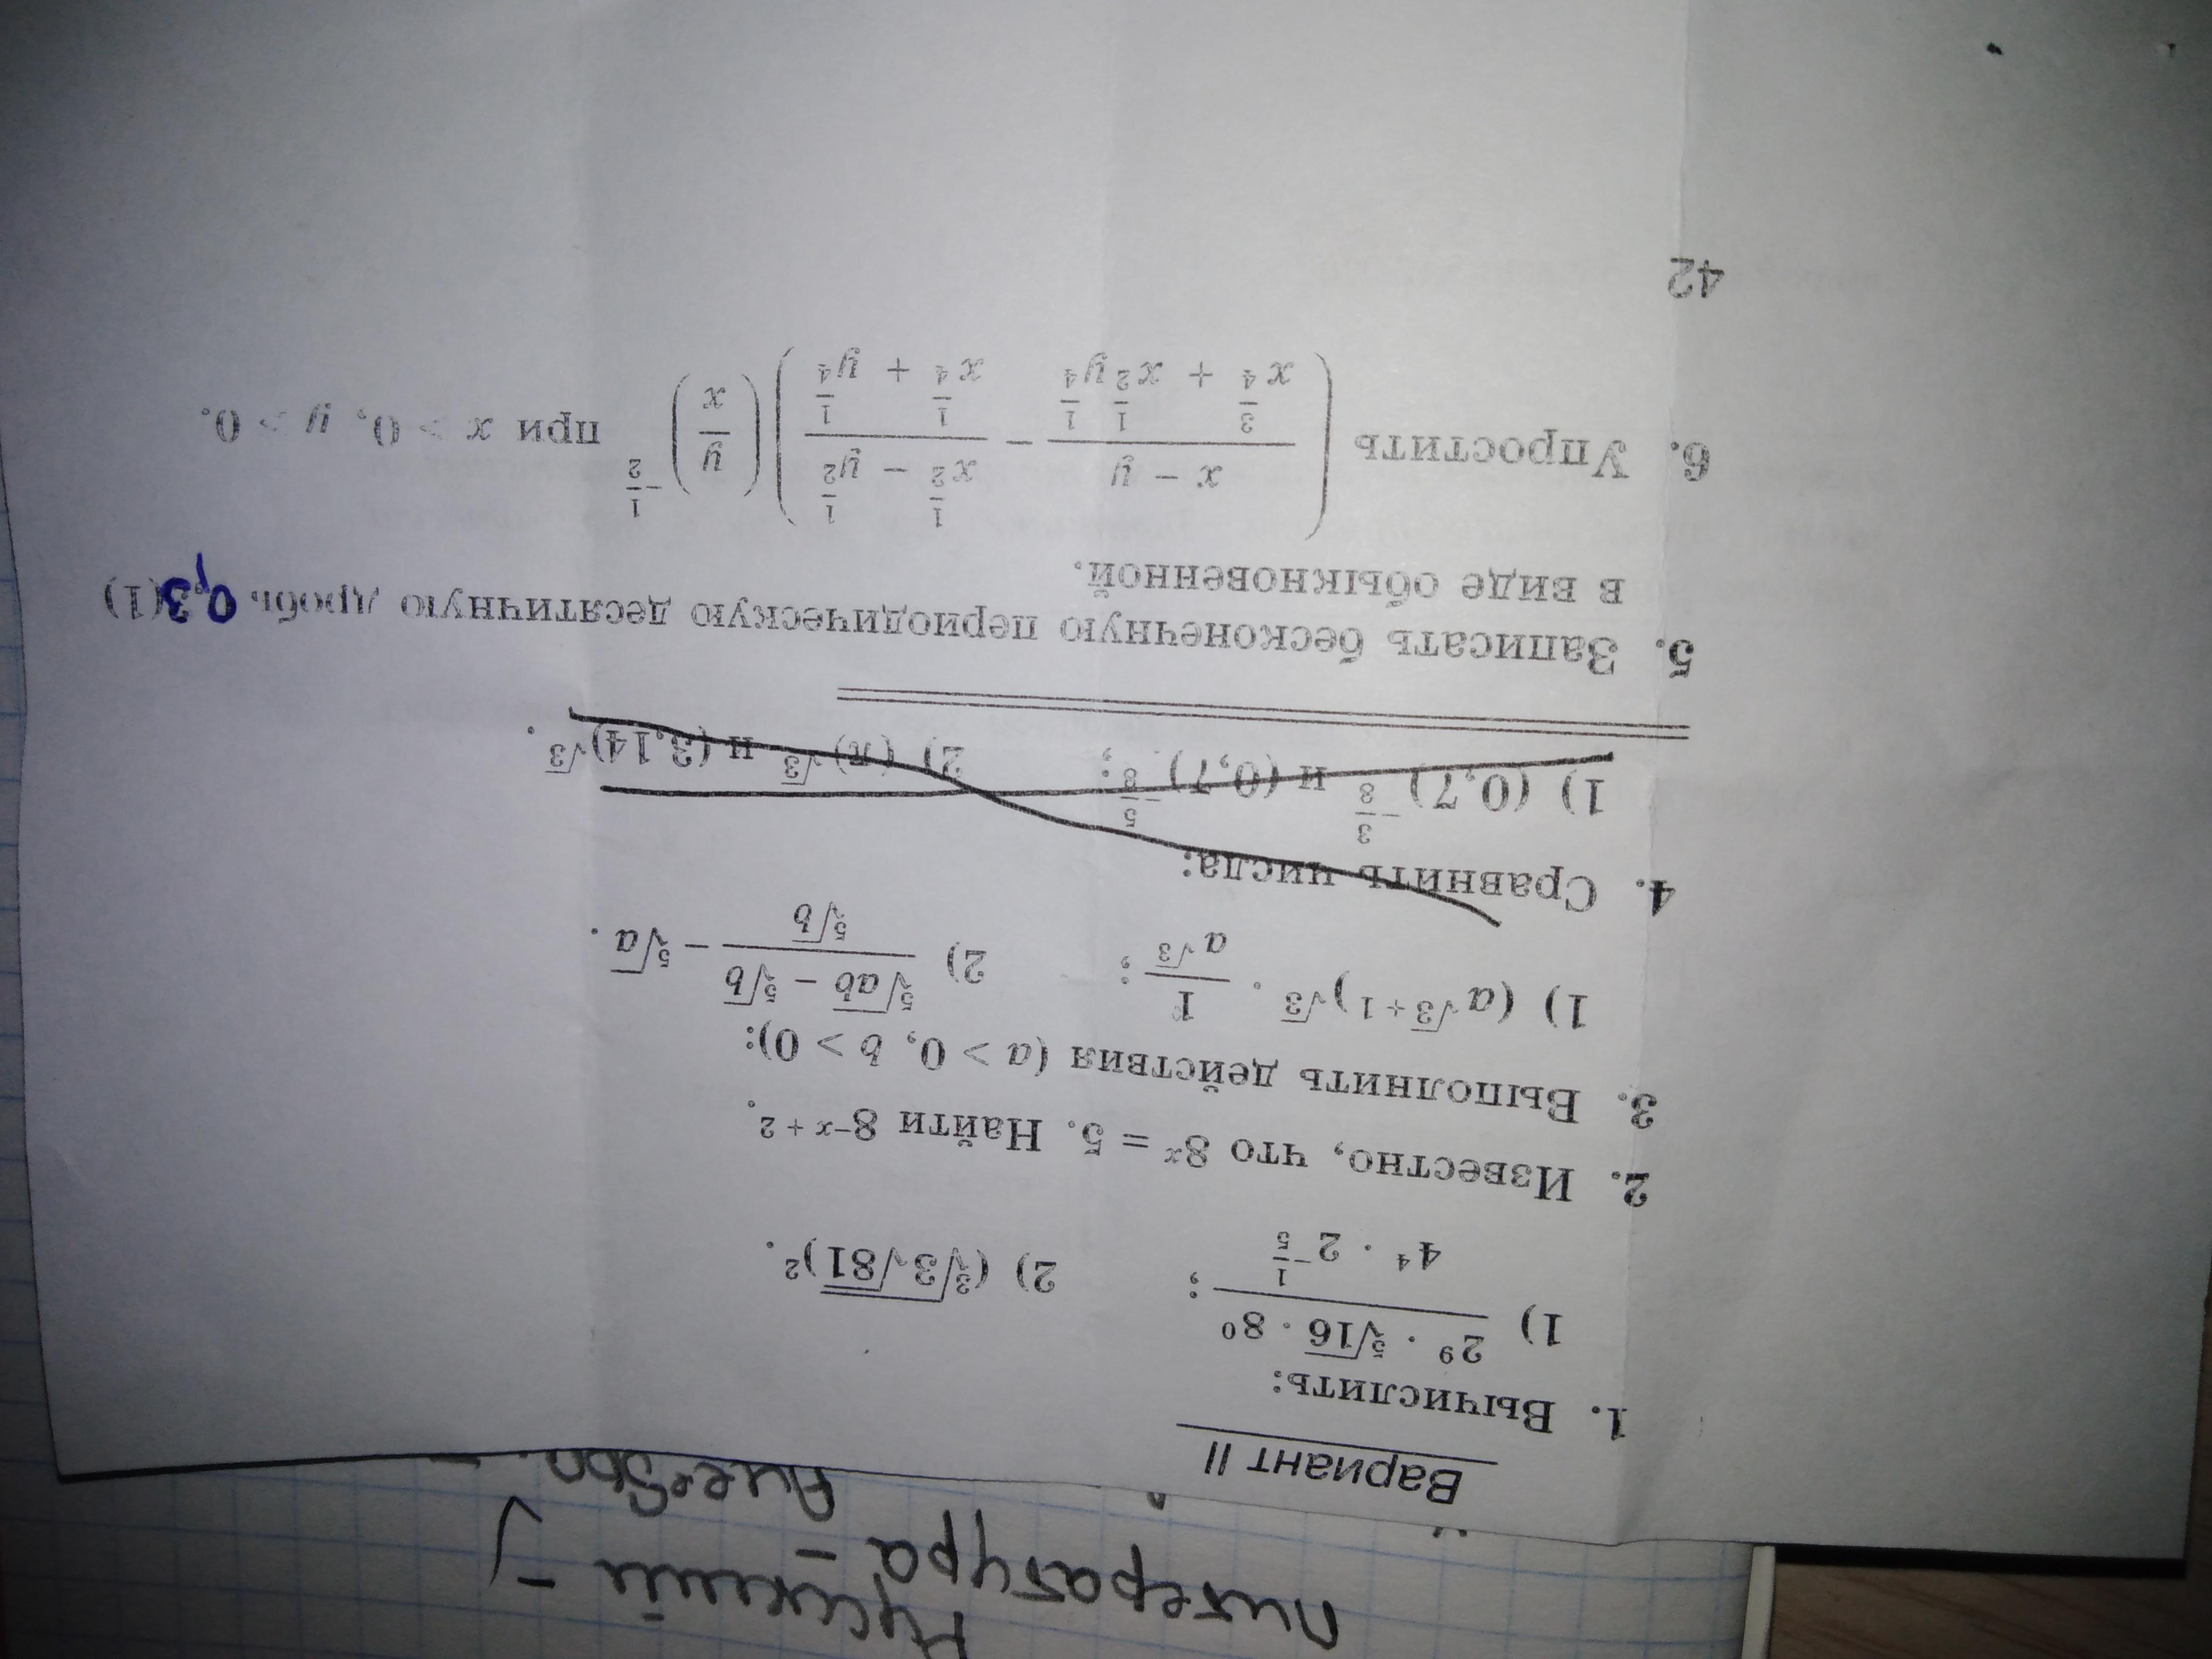 Литература –
Вариант II
1. Вычислить:
1) (2⁹ · ⁵√16 · 8⁰)/(4⁴ · 2^(-1/5)); 2) (∛(3√81))².
2. Известно, что 8ˣ = 5. Найти 8^(-x + 2).
3. Выполнить действия (a > 0, b > 0):
1) (a^(√3 + 1))^√3 · 1/a^√3; 2) (⁵√ab – ⁵√b)/⁵√b – ⁵√a.
4. Сравнить числа:
1) (0,7)^(-3/8) и (0,7)^(-5/8); 2) (π)^√3 и (3,14)^√3.
5. Записать бесконечную периодическую десятичную дробь 0,3(1)
в виде обыкновенной.
6. Упростить ((x – y)/(x^(3/4) + x^(1/2)y^(1/4)) – (x^(1/2) – y^(1/2))/(x^(1/4) + y^(1/4)))(y/x)^(-1/2) при x > 0, y > 0.
42